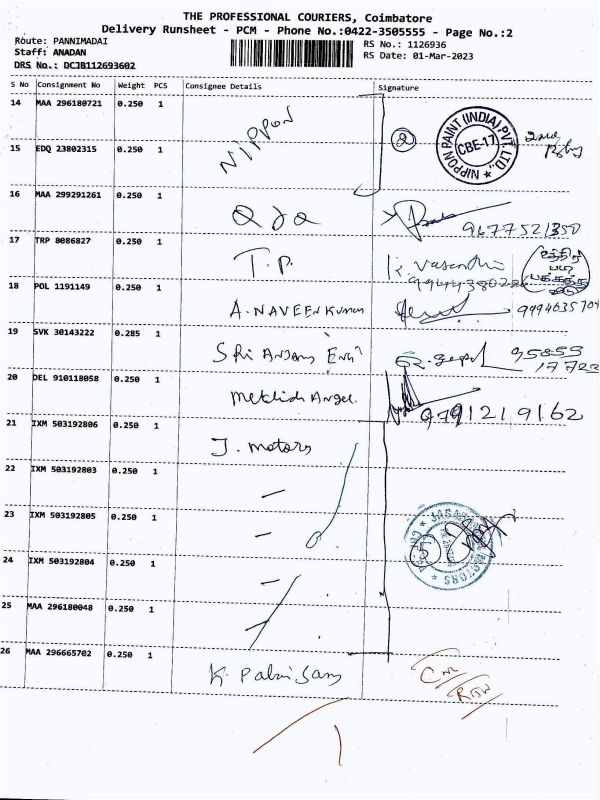 THE PROFESSIONAL COURIERS, Coimbatore
Delivery Runsheet - PCM - Phone No.:0422-3505555 - Page No.:2
Route: PANNIMADAI
Staff: ANADAN
DRS No.: DCJB112693602
RS No.: 1126936
RS Date: 01-Mar-2023
S No Consignment No Weight PCS Consignee Details Signature
14 MAA 296180721 0.250 1 NIPPON
2
NIPPON PAINT (INDIA) PVT. LTD.
CBE-17
15 EDQ 23802315 0.250 1
16 MAA 299291261 0.250 1
9677521350
17 TRP 8086827 0.250 1 T.P. K. Vasandhi
9944438022
18 POL 1191149 0.250 1 A. NAVEEN Kumar 9994635704
19 SVK 30143222 0.285 1 SRi ANJANS ENG 95859
17722
20 DEL 910118058 0.250 1 9791219162
21 IXM 503192806 0.250 1 J. motors
22 IXM 503192803 0.250 1
23 IXM 503192805 0.250 1
5
MOTORS
24 IXM 503192804 0.250 1
25 MAA 296180048 0.250 1
26 MAA 296665702 0.250 1 K. Palanisamy